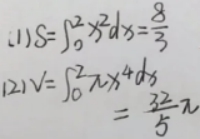 (1) S=∫₀²x²dx=8/3
(2) V=∫₀²πx⁴dx
=32/5 π